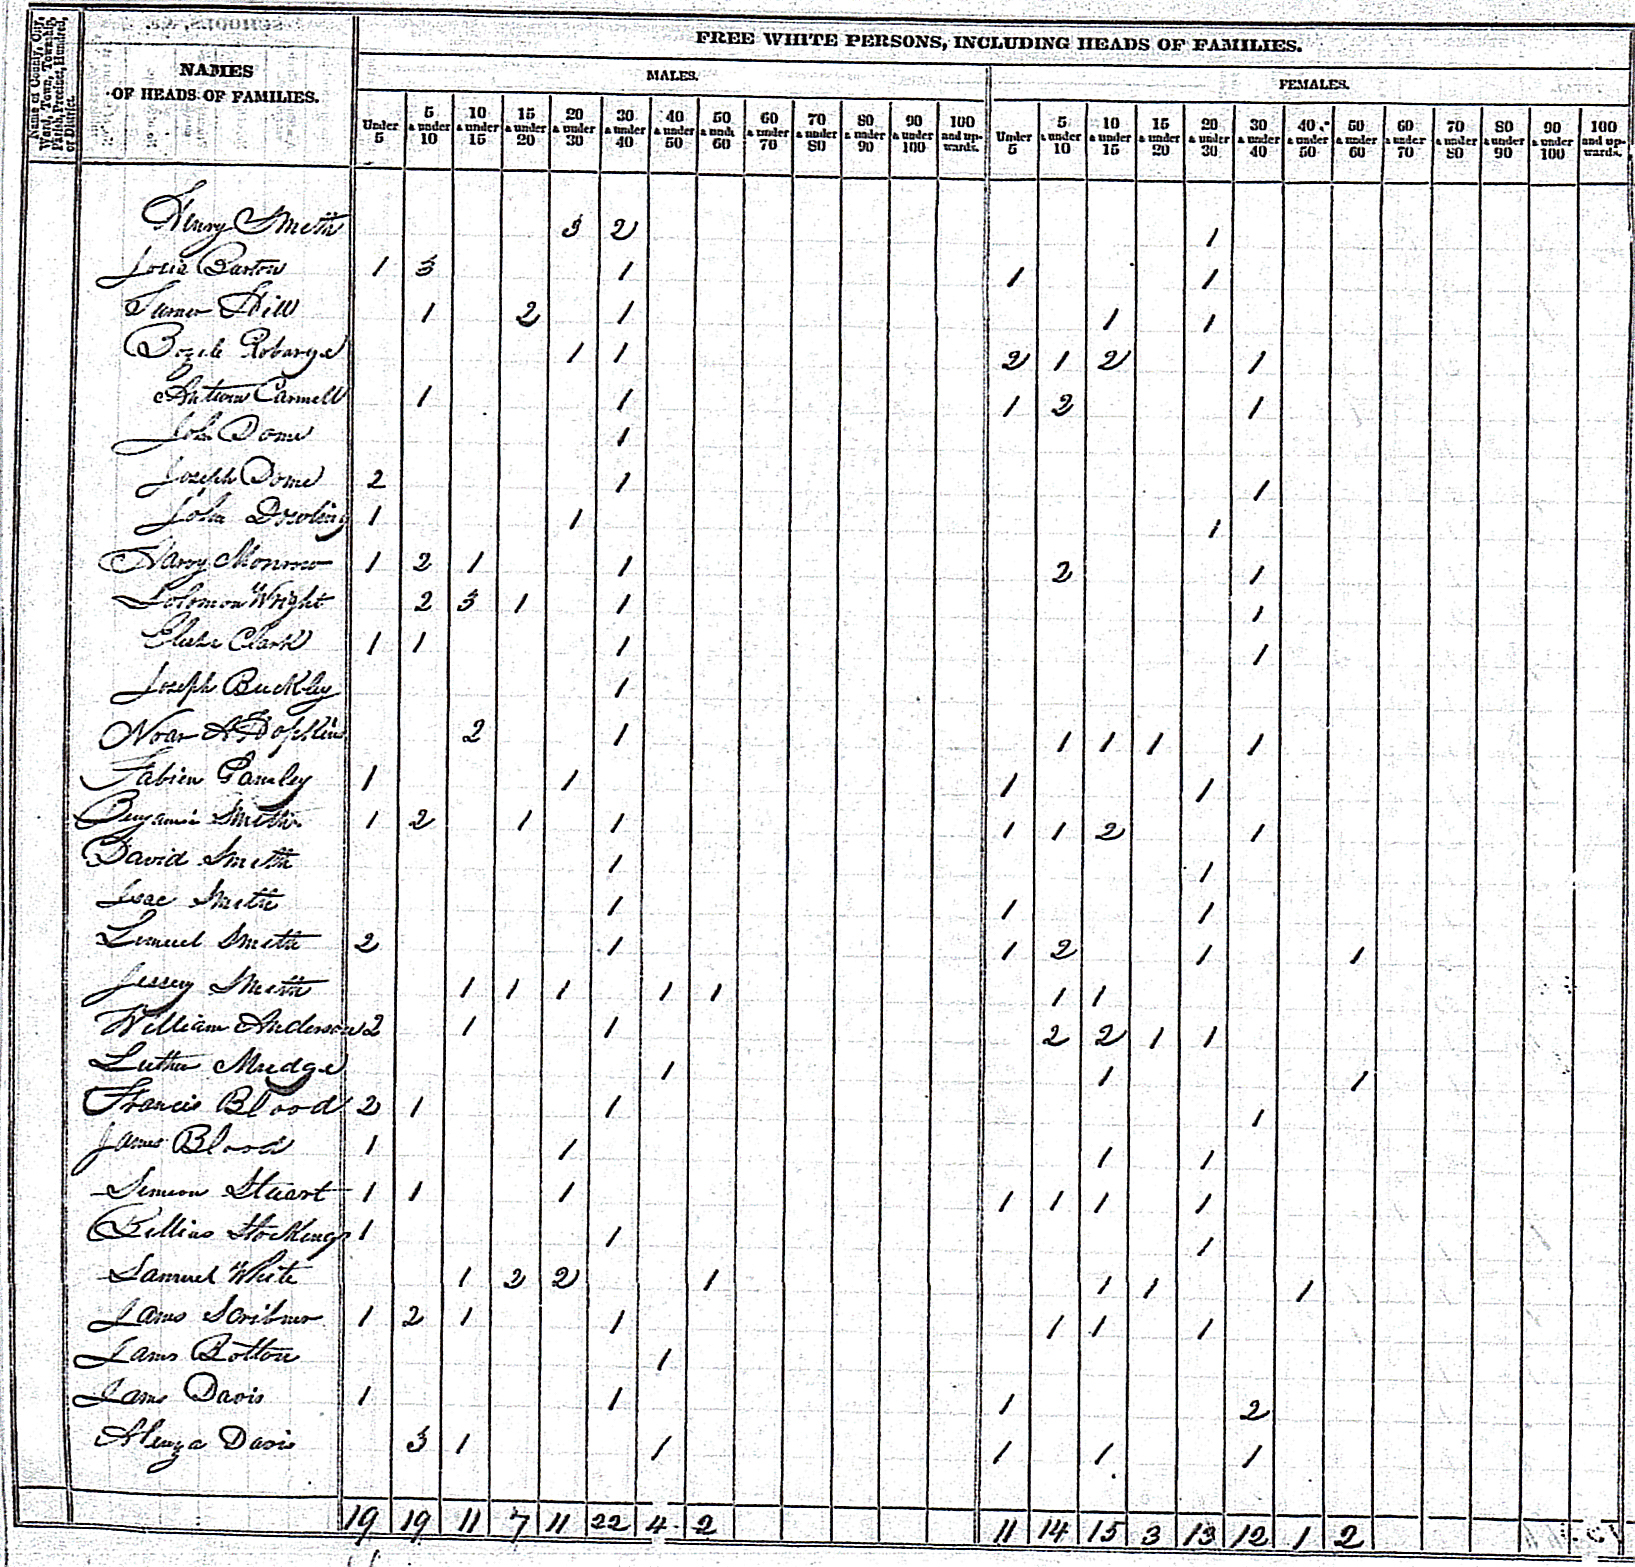 FREE WHITE PERSONS, INCLUDING HEADS OF FAMILIES.
Name of County, City, Ward, Town, Township, Parish, Precinct, Hundred, or District.
NAMES
OF HEADS OF FAMILIES.
MALES. FEMALES.
Under 5 5 & under 10 10 & under 15 15 & under 20 20 & under 30 30 & under 40 40 & under 50 50 & und. 60 60 & under 70 70 & under 80 80 & under 90 90 & under 100 100 and upwards. Under 5 5 & under 10 10 & under 15 15 & under 20 20 & under 30 30 & under 40 40 & under 50 50 & under 60 60 & under 70 70 & under 80 80 & under 90 90 & under 100 100 and upwards.
Henry Smith 3 2 1
Barton 1 3 1 1 1
Hill 1 2 1 1 1
1 1 2 1 2 1
Carmell 1 1 1 2 1
John Dome 1
Joseph Dome 2 1 1
John 1 1 1
Harry Monrow 1 2 1 1 2 1
Solomon Wright 2 3 1 1 1
Clark 1 1 1 1
Joseph Buckley 1
Noar Hopkins 2 1 1 1 1 1
Fabien 1 1 1 1
Benjamin Smith 1 2 1 1 1 1 2 1
David Smith 1 1
Isac Smith 1 1 1
Lemuel Smith 2 1 1 2 1 1
Jessey Smith 1 1 1 1 1 1 1
William Anderson 2 1 1 2 2 1 1
Luther Mudge 1 1 1
Francis Blood 2 1 1 1
James Blood 1 1 1 1
Simeon Stuart 1 1 1 1 1 1 1
1 1 1
Samuel White 1 2 2 1 1 1 1
James Scribner 1 2 1 1 1 1 1
James Botton 1
James Davis 1 1 1 2
Davis 3 1 1 1 1 1
19 19 11 7 11 22 4 2 11 14 15 3 13 12 1 2